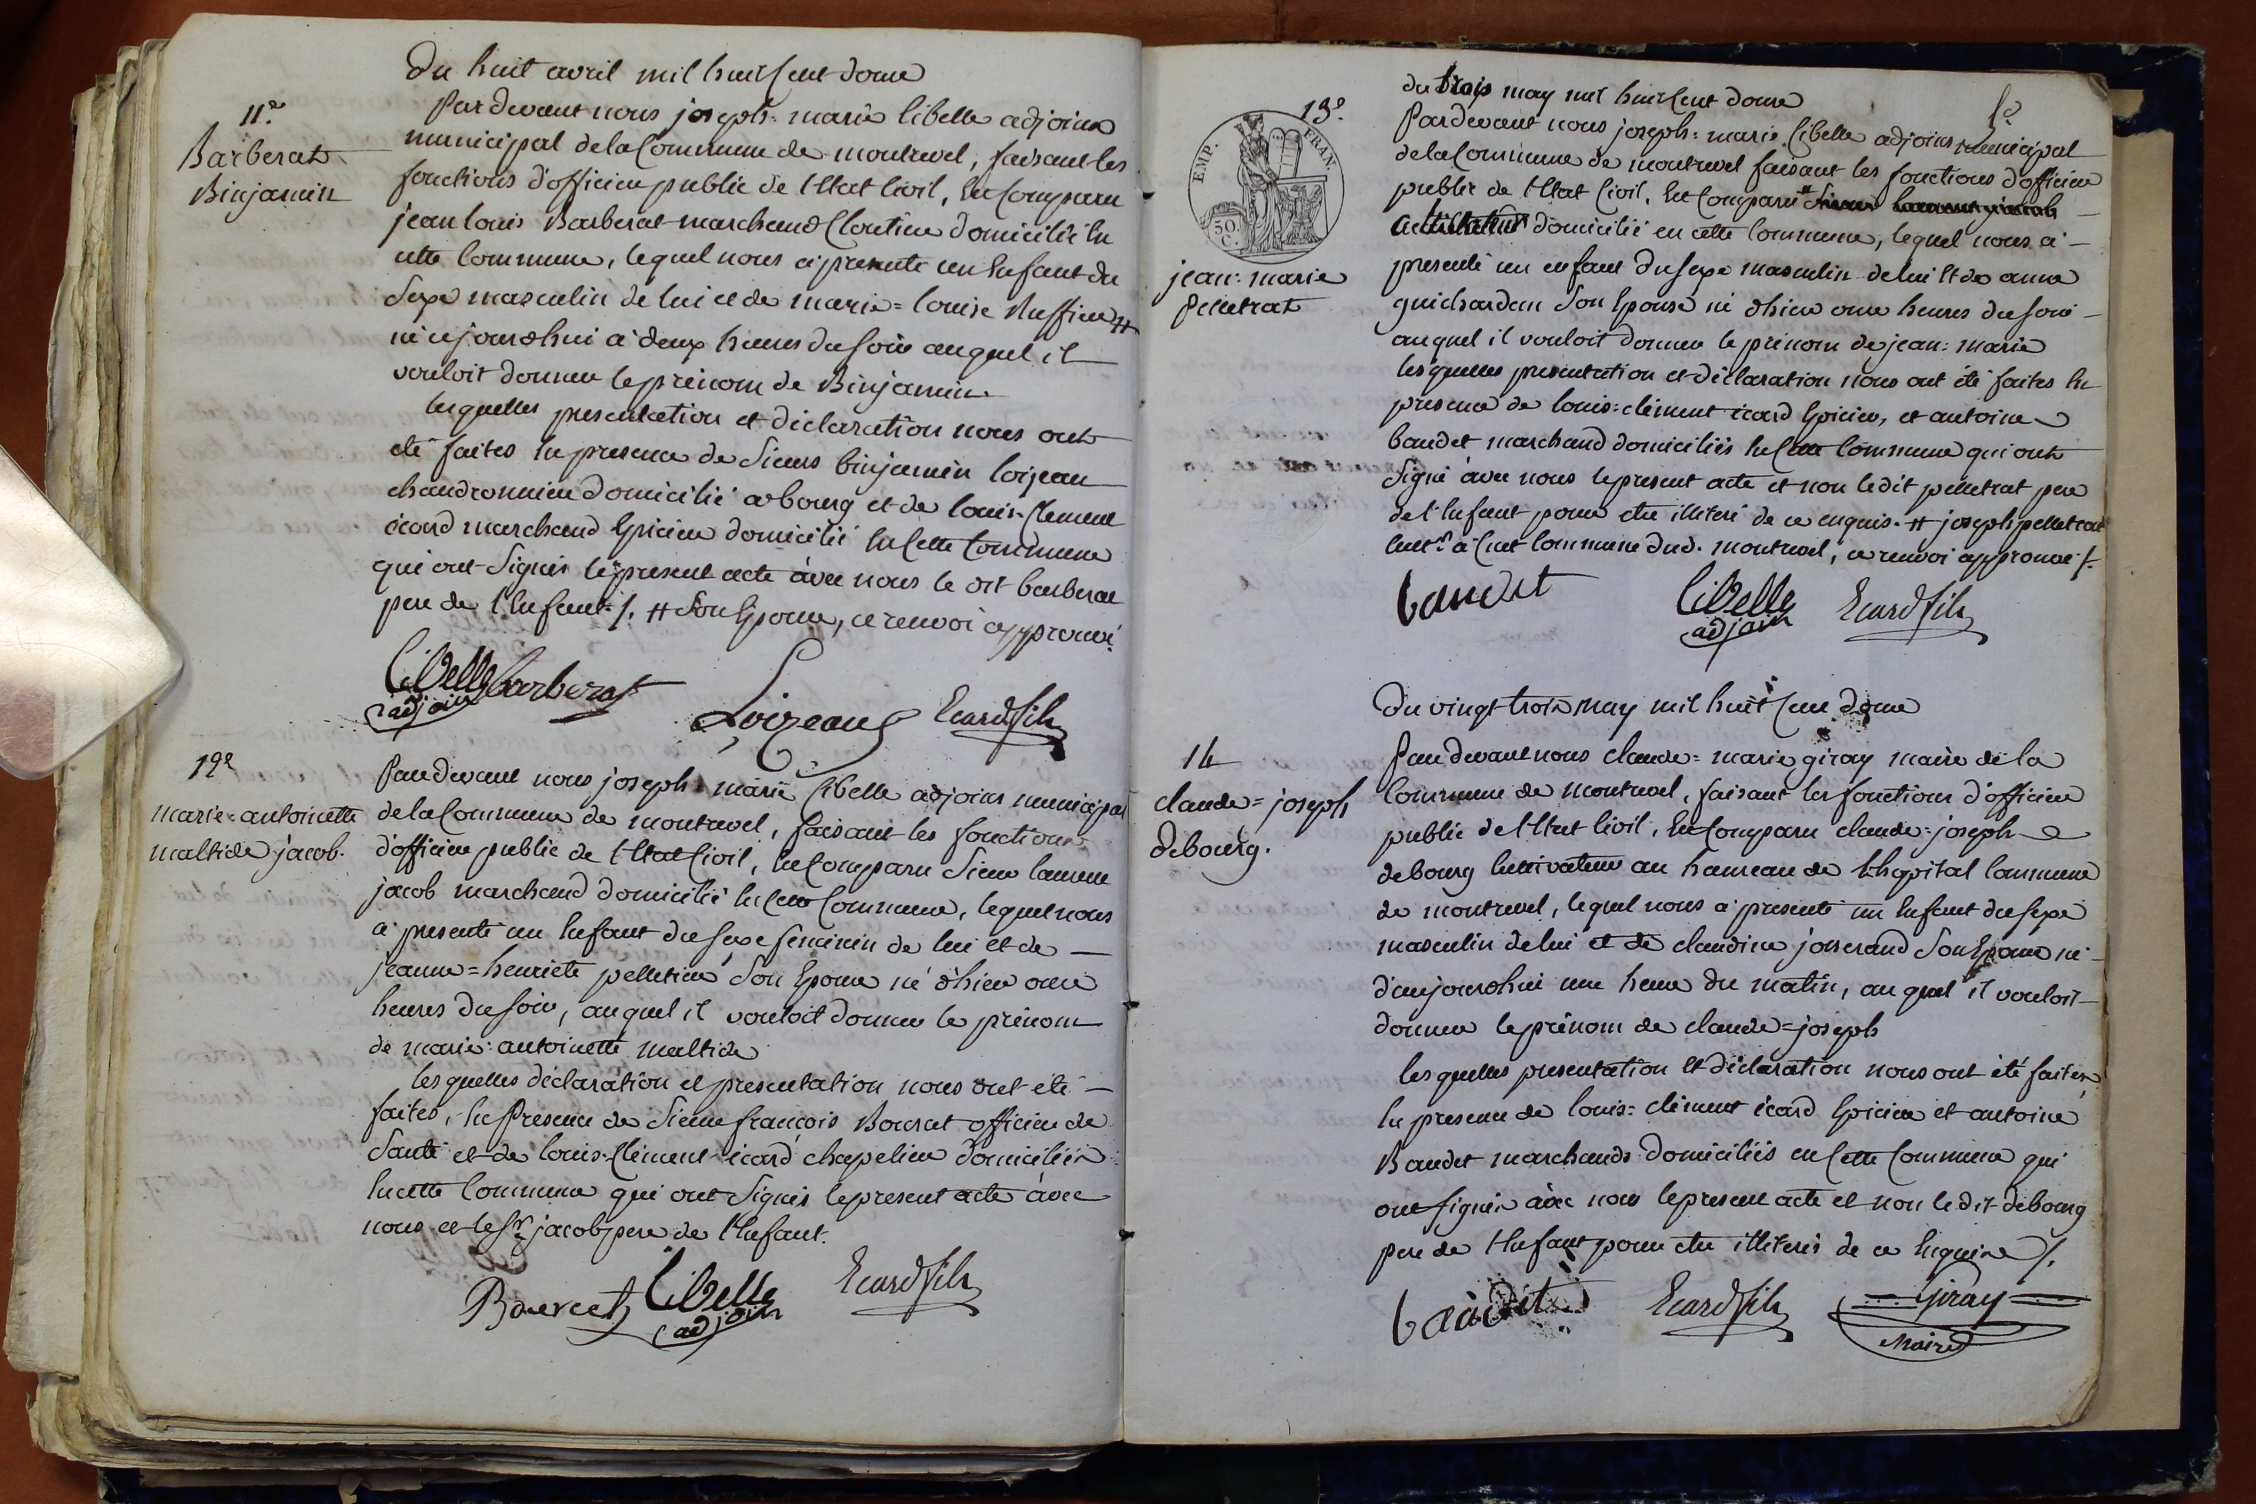 Du huit avril mil huit Cent douze
11e
Barberat
Binjamin
Pardevant nous joseph=marie libelle adjoint
municipal de la Commune de montrevel, faisant les
fonctions d'officier public de l'Etat Civil, En Comparu
jean louis Barberat marchand Cloutier domicilié En
cette Commune, lequel nous a presenté un Enfant du
Sexe masculin de lui et de marie=louise #
né ajourdhui à deux heures du soir auquel il
vouloit donner le prénom de Binjamin
lesquelles presentation et déclaration nous ont
été faites En presence de Sieurs binjamin loizeau
chaudronnier domicilié a bourg et de louis=Clement
écard marchand Epicier domicilié En Cette Commune
qui ont Signés le present acte àvec nous le dit barberat
pere de l'Enfant ./. # Son Epouse, ce renvoi approuvé.
Libelle
adjoint
barberat
Loizeau
Ecard fils
12e
marie=antoinette
maltide jacob.
Pardevant nous joseph marie Libelle adjoint municipal
de la Commune de montrevel, faisant les fonctions
d'officier public de l'Etat Civil, En Comparu Sieur laurent
jacob marchand domicilié En Cette Commune, lequel nous
a presenté un Enfant du sexe feminin de lui et de
jeanne=henriete pelletier Son Epouse né d'hier onze
heures du soir, auquel il vouloit donner le prénom
de marie=antoinette maltide
lesquelles déclaration et presentation nous ont été
faites, En Presence de Sieur françois Bourcet officier de
Santé et de louis=Clément écard chapelier domiciliés
En cette Commune qui ont Signés le present acte àvec
nous et le Sr jacob pere de l'Enfant.
Bourcet
Libelle
adjoint
Ecard fils
du trois may mil huit Cent douze
13e
EMP. FRAN.
50. C.
jean=marie
Pelletrat
Pardevant nous joseph=marie Libelle adjoint Municipal
de la Commune de montrevel faisant les fonctions d'officier
public de l'Etat Civil, En Comparu #
domicilié en cette Commune, lequel nous a
presenté un enfant du sexe masculin de lui Et de anne
guichardan Son Epouse né d'hier onze heures du soir
auquel il vouloit donner le prénom de jean=marie
lesquelles presentation et déclaration nous ont été faites En
presence de louis=clément écard Epicier, et antoine
baudet marchand domiciliés En Cette Commune qui ont
Signé àvec nous le present acte et non ledit pelletrat pere
de l'Enfant pour etre illiteré de ce enquis. # joseph pelletrat
cult.r à Cuet Commune dud. montrevel, ce renvoi approuvé ./.
baudet
Libelle
adjoint
Ecard fils
Du vingt trois may mil huit Cent douze
14
claude=joseph
debourg.
Pardevant nous claude=marie giray maire de la
Commune de montrevel, faisant les fonctions d'officier
public de l'Etat Civil, En Comparu claude=joseph
debourg Cultivateur au hameau de l'hopital Commune
de montrevel, lequel nous a presenté un Enfant du sexe
masculin de lui et de claudine josserand Son Epouse né
d'aujourdhui une heure du matin, auquel il vouloit
donner le prénom de claude=joseph
lesquelles presentation Et déclaration nous ont été faites
En presence de louis=clément écard Epicier et antoine
Baudet marchands domiciliés en Cette Commune qui
ont signés àvec nous le present acte et non le dit debourg
pere de l'Enfant pour etre illiterés de ce Enquis ./.
baudet
Ecard fils
Giray
Maire